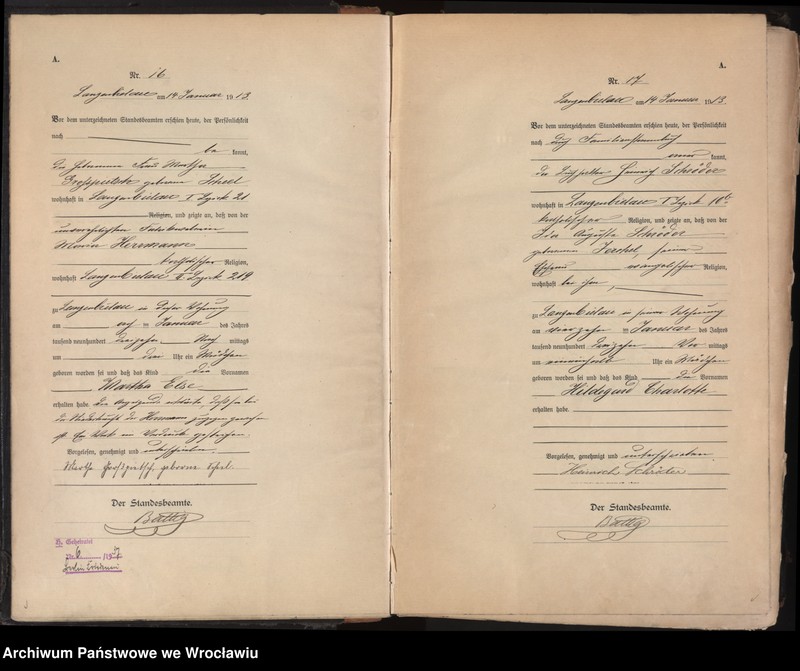 A.
Nr. 16
Langenbielau am 14 Januar 1913.
Vor dem unterzeichneten Standesbeamten erschien heute, der Persönlichkeit
nach
be kannt,
die Hebamme Frau Martha
geborene Scheel
wohnhaft in Langenbielau I Bezirk 21
Religion, und zeigte an, daß von der
unverehelichten
Maria Herrmann
katholischer Religion,
wohnhaft Langenbielau II Bezirk 219
zu Langenbielau in dieser Wohnung
am acht ten Januar des Jahres
tausend neunhundert dreizehn Nach mittags
um drei Uhr ein Mädchen
geboren worden sei und daß das Kind die Vornamen
Martha Else
erhalten habe. Die Anzeigende erklärte, daß sie bei
der Niederkunft der Herrmann zugegen gewesen
sei. Ein Wort im Vordruck gestrichen.
Vorgelesen, genehmigt und unterschrieben.
Martha geborene Scheel.
Der Standesbeamte.
A.
Nr. 17
Langenbielau am 14 Januar 1913
Vor dem unterzeichneten Standesbeamten erschien heute, der Persönlichkeit
nach durch Familienstammbuch
aner kannt,
der Heinrich Schröder
wohnhaft in Langenbielau I Bezirk
katholischer Religion, und zeigte an, daß von der
Ida Auguste Schröder
geborenen seiner
Ehefrau evangelischer Religion,
wohnhaft bei ihm,
zu Langenbielau in seiner Wohnung
am vierzehn ten Januar des Jahres
tausend neunhundert dreizehn Vor mittags
um Uhr ein Mädchen
geboren worden sei und daß das Kind die Vornamen
Hildegard Charlotte
erhalten habe.
Vorgelesen, genehmigt und unterschrieben.
Heinrich Schröder
Der Standesbeamte.
Archiwum Państwowe we Wrocławiu